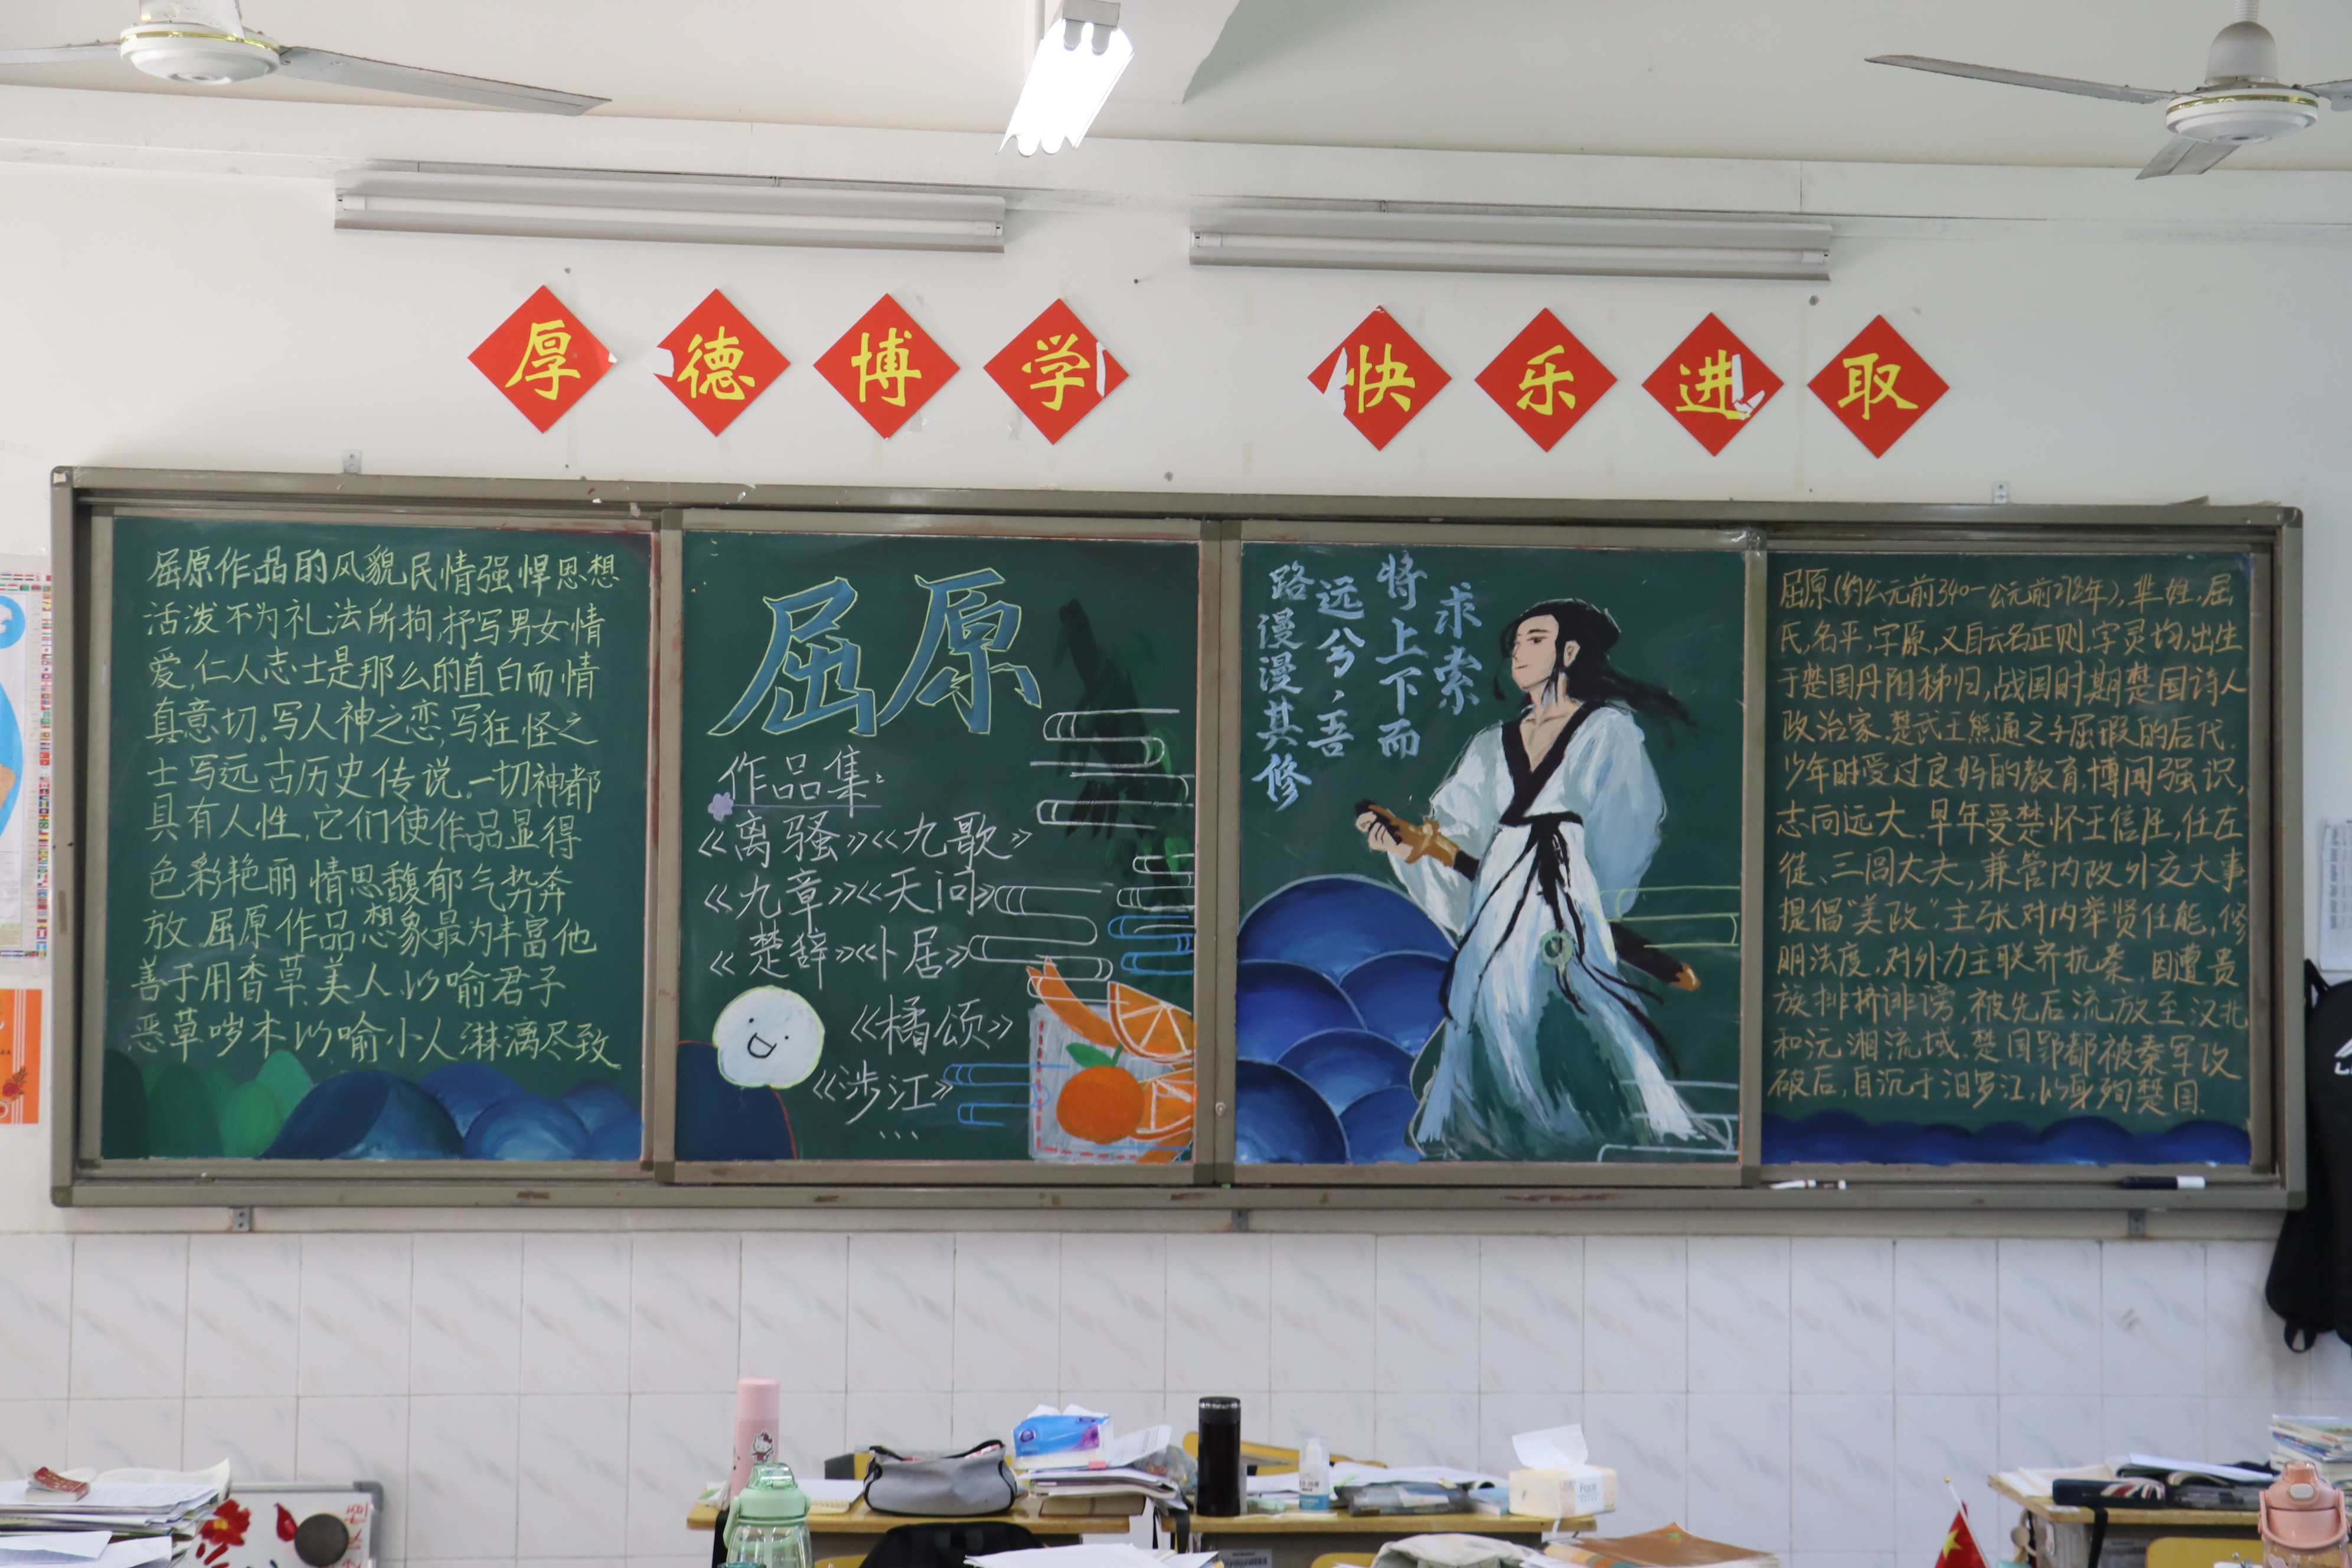 厚德博学 快乐进取
屈原作品的风貌民情强悍思想
活泼不为礼法所拘,抒写男女情
爱,仁人志士是那么的直白而情
真意切。写人神之恋,写狂怪之
士写远古历史传说,一切神都
具有人性,它们使作品显得
色彩艳丽情思馥郁气势奔
放.屈原作品想象最为丰富他
善于用香草.美人以喻君子
恶草哕木以喻小人淋漓尽致
屈原
作品集:
《离骚》《九歌》
《九章》《天问》
《楚辞》《卜居》
《橘颂》
《涉江》
...
求索
将上下而
远兮,吾
路漫漫其修
屈原(约公元前340-公元前278年),芈姓.屈
氏,名平,字原,又自云名正则,字灵均,出生
于楚国丹阳秭归,战国时期楚国诗人
政治家.楚武王熊通之子屈瑕的后代.
少年时受过良好的教育,博闻强识,
志向远大.早年受楚怀王信任,任左
徒、三闾大夫,兼管内政外交大事.
提倡“美政”.主张对内举贤任能,修
明法度,对外力主联齐抗秦.因遭贵
族排挤诽谤,被先后流放至汉北
和沅湘流域.楚国郢都被秦军攻
破后,自沉于汨罗江,以身殉楚国.